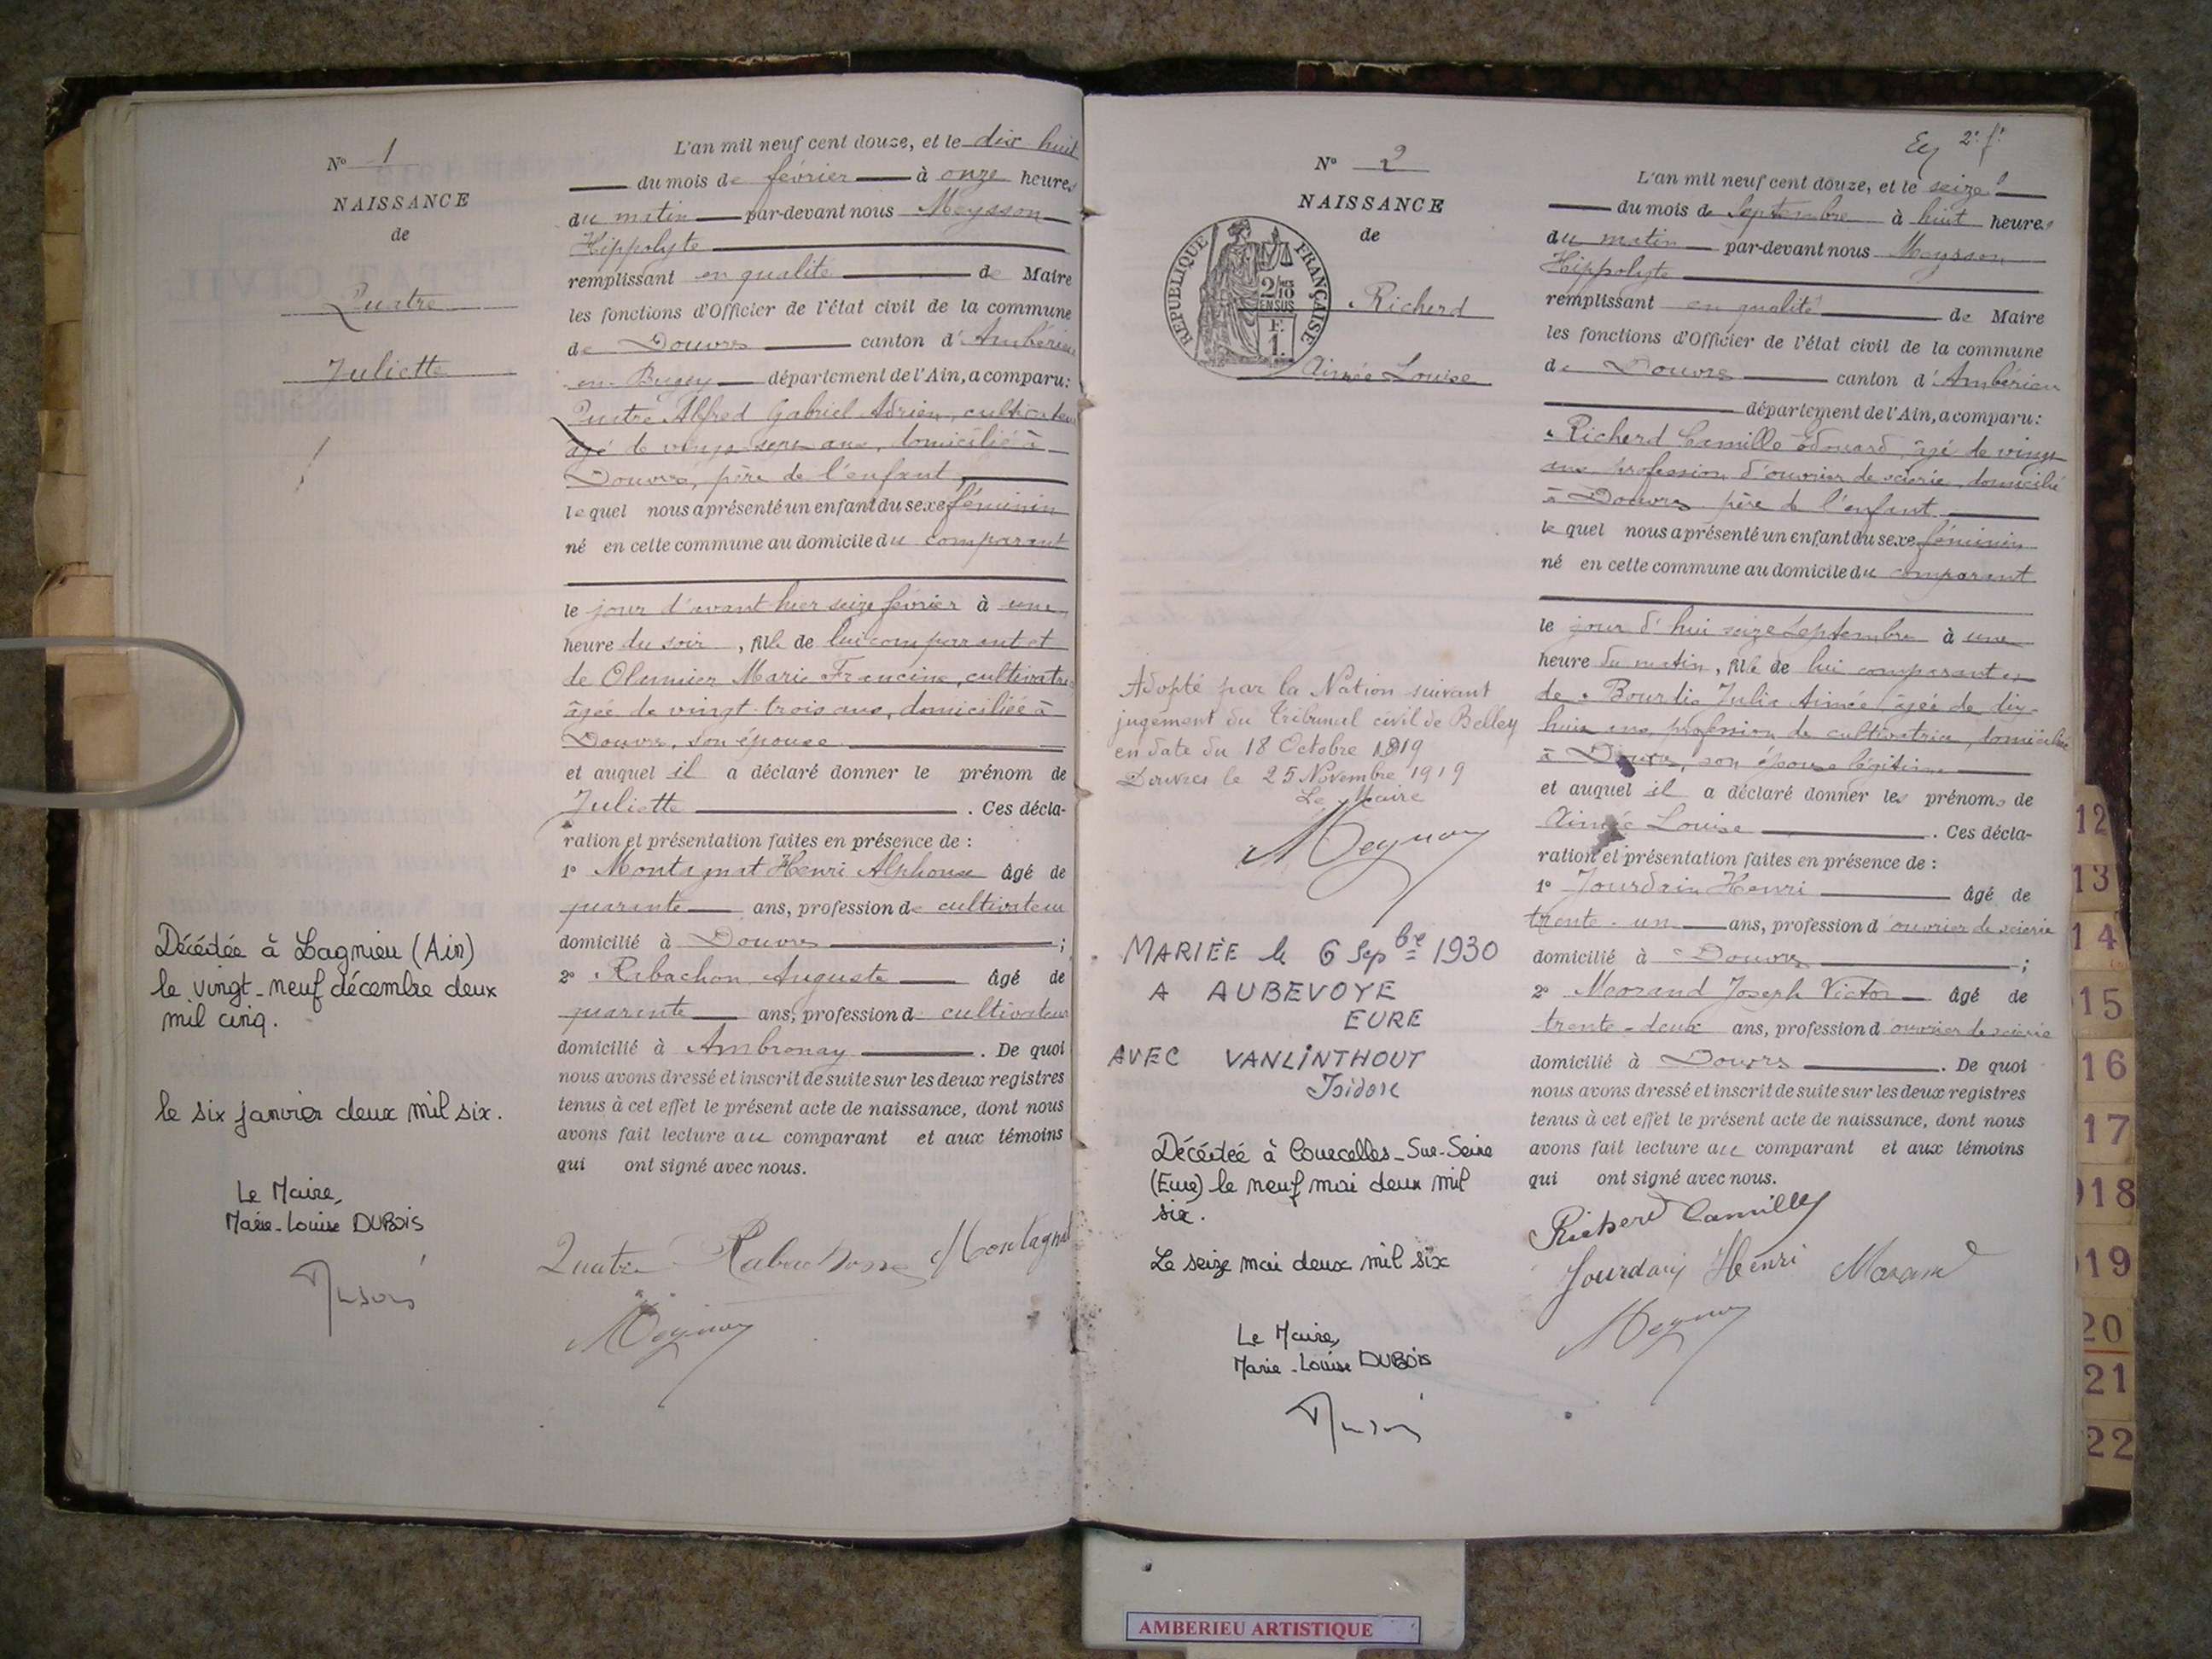 N° 1
NAISSANCE
de
Quatre
Juliette
Décédée à Lagnieu (Ain)
le vingt-neuf décembre deux
mil cinq.
le six janvier deux mil six.
Le Maire,
Marie-Louise DUBOIS
L'an mil neuf cent douze, et le dix huit
du mois de février à onze heures
du matin par-devant nous Meysson
Hippolyte
remplissant en qualité de Maire
les fonctions d'Officier de l'état civil de la commune
de Douvres canton d'Ambérieu
en Bugey département de l'Ain, a comparu:
Quatre Alfred Gabriel Adrien, cultivateur
âgé de vingt sept ans, domicilié à
Douvres, père de l'enfant
lequel nous a présenté un enfant du sexe féminin
né en cette commune au domicile du comparant
le jour d'avant hier seize février à une
heure du soir, fille de lui comparant et
de Marie Francine, cultivatrice
âgée de vingt-trois ans, domiciliée à
Douvres, son épouse
et auquel il a déclaré donner le prénom de
Juliette. Ces décla-
ration et présentation faites en présence de :
1° Montagnat Henri Alphonse âgé de
quarante ans, profession de cultivateur
domicilié à Douvres ;
2° Rabachon Auguste âgé de
quarante ans, profession de cultivateur
domicilié à Ambronay. De quoi
nous avons dressé et inscrit de suite sur les deux registres
tenus à cet effet le présent acte de naissance, dont nous
avons fait lecture au comparant et aux témoins
qui ont signé avec nous.
Quatre Montagnat
N° 2
NAISSANCE
de
REPUBLIQUE FRANÇAISE
2/10
EN SUS
F.
1.
Richerd
Aimée Louise
Adopté par la Nation suivant
jugement du Tribunal civil de Belley
en date du 18 Octobre 1919
Douvres le 25 Novembre 1919
Le Maire
MARIÉE le 6 Sepbre 1930
A AUBEVOYE
EURE
AVEC VANLINTHOUT
Isidore
Décédée à Courcelles-Sur-Seine
(Eure) le neuf mai deux mil
six.
Le seize mai deux mil six
Le Maire,
Marie-Louise DUBOIS
L'an mil neuf cent douze, et le seize
du mois de Septembre à huit heures
du matin par-devant nous Meysson
Hippolyte
remplissant en qualité de Maire
les fonctions d'Officier de l'état civil de la commune
de Douvres canton d'Ambérieu
département de l'Ain, a comparu:
Richerd Camille Edouard, âgé de vingt
ans profession d'ouvrier de scierie, domicilié
à Douvres père de l'enfant
lequel nous a présenté un enfant du sexe féminin
né en cette commune au domicile du comparant
le jour d'hui seize Septembre à une
heure du matin, fille de lui comparant et
de Bourdin Julie Aimée âgée de dix-
huit ans, profession de cultivatrice, domiciliée
à Douvres, son épouse légitime
et auquel il a déclaré donner les prénoms de
Aimée Louise. Ces décla-
ration et présentation faites en présence de :
1° Jourdain Henri âgé de
trente-un ans, profession d'ouvrier de scierie
domicilié à Douvres ;
2° Morand Joseph Victor âgé de
trente-deux ans, profession d'ouvrier de scierie
domicilié à Douvres. De quoi
nous avons dressé et inscrit de suite sur les deux registres
tenus à cet effet le présent acte de naissance, dont nous
avons fait lecture au comparant et aux témoins
qui ont signé avec nous.
Richerd Camille
Jourdain Henri Morand
12
13
14
15
16
17
18
19
20
21
22
AMBERIEU ARTISTIQUE